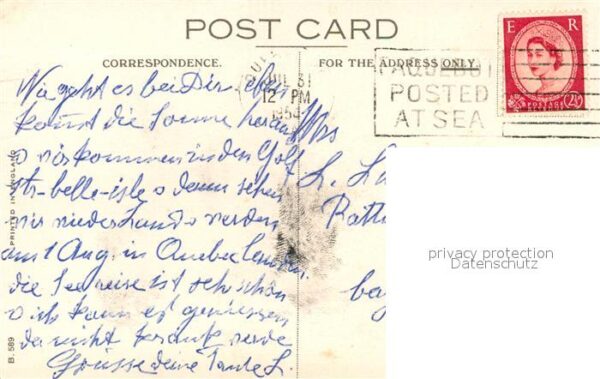 POST CARD
CORRESPONDENCE.
FOR THE ADDRESS ONLY.
E R
POSTAGE
2½
JUL 31
12 PM
1954
PAQUEBOT
POSTED
AT SEA
Wie geht es bei Dir eben
kommt die Sonne heraus
wir kommen in den Golf
str-belle-isle dann sehen
wir wieder Land werden
am 1 Aug. in Quebec landen
die Seereise ist sehr schön
ich kann es geniessen
da nicht krank werde
Grüsse deine Tante L.
Mrs
L. L
PRINTED IN ENGLAND
B. 589
privacy protection
Datenschutz